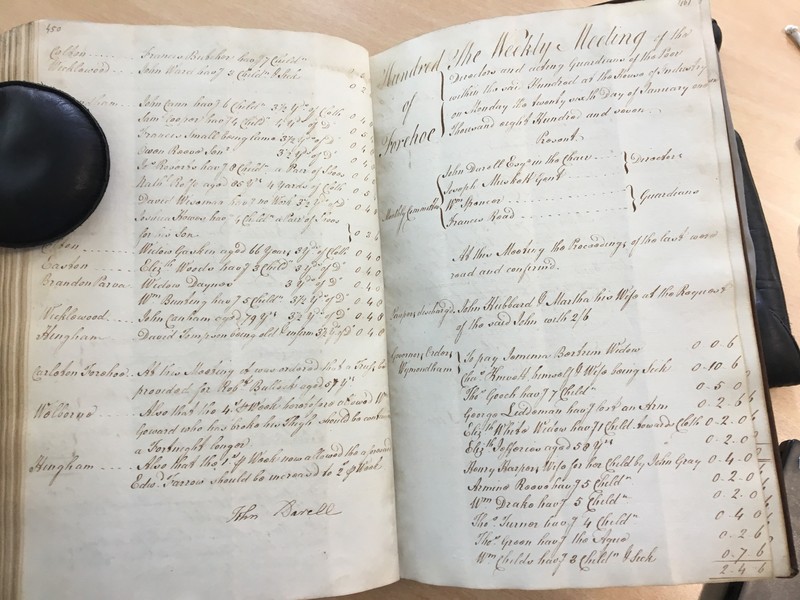 450
Colton Francis Butcher hav.g 7 Child.n
Wicklewood John Ward hav.g 5 Child.n & Sick
John Cann hav.g 6 Child.n 3½ y.ds of Cloth
Sam Cooper hav.g 4 Child.n
Francis Small being lame 3½ y.ds of D.o
Owen Reeve Sen.r 3½ y.ds of D.o
Roberts hav.g 8 Child.n a Pair of Shoes
Nath.l aged 85 y.rs 4 yards of Cloth
David Wiseman hav.g no Work 3½ y.ds of D.o
Joshua Howes hav.g 4 Child.n a Pair of Shoes
for his Son
Widow Gaskin aged 66 Years 3 y.ds of Cloth 0 4 0
Easton Eliz.th Woods hav.g 3 Child.n 3 y.ds of D.o 0 4 0
Brandon Parva Widow Daynes 3 y.ds of D.o 0 4 0
W.m Bunting hav.g 5 Child.n 3½ y.ds of D.o 0 4 0
Wicklewood John Canham aged 79 y.rs 3½ y.ds of D.o 0 4 0
Hingham David Timpson being old & infirm 3½ y.ds of D.o 0 4 0
Carleton Forehoe At this Meeting it was ordered that a Truss be
provided for Rob.t Bullock aged 57 y.rs
Welborne Also that the 4.s p Week heretofore allowed W.m
Goward who has broke his Thigh should be continued
a Fortnight longer
Hingham Also that the 1.s p Week now allowed the aforesaid
Edw.d Farrow should be increased to 2.s p Week
John Darell
Hundred of Forehoe
The Weekly Meeting of the
Directors and acting Guardians of the Poor
within the said Hundred at the House of Industry
on Monday the twenty sixth Day of January one
Thousand eight Hundred and seven
Present
Monthly Committee
John Darell Esq.r in the Chair
Joseph Muskett Gent
Directors
W.m Spencer
Francis Read
Guardians
At this Meeting the Proceedings of the last were
read and confirmed.
Paupers discharged John Hubbard & Martha his Wife at the Request
of the said John with 2/6
Governor Ordered Wymondham
To pay Jemima Bertrum Widow 0-0-6
Cha.s Hewett himself & Wife being Sick 0-10-6
Tho.s Gooch hav.g 7 Child.n 0-5-0
George Lideman hav.g lost an Arm 0-2-6
Eliz.th White Widow hav.g 1 Child towards Cloth 0-2-0
Eliz.th Jefferies aged 58 y.rs 0-2-0
Henry Harpers Wife for her Child by John Gray 0-4-0
Armine Reeve hav.g 5 Child.n 0-2-0
W.m Drake hav.g 5 Child.n 0-2-0
Tho.s Turner hav.g 4 Child.n 0-4-0
Tho.s Green hav.g the Ague 0-2-6
W.m Childs hav.g 3 Child.n & Sick 0-7-6
2-4-6